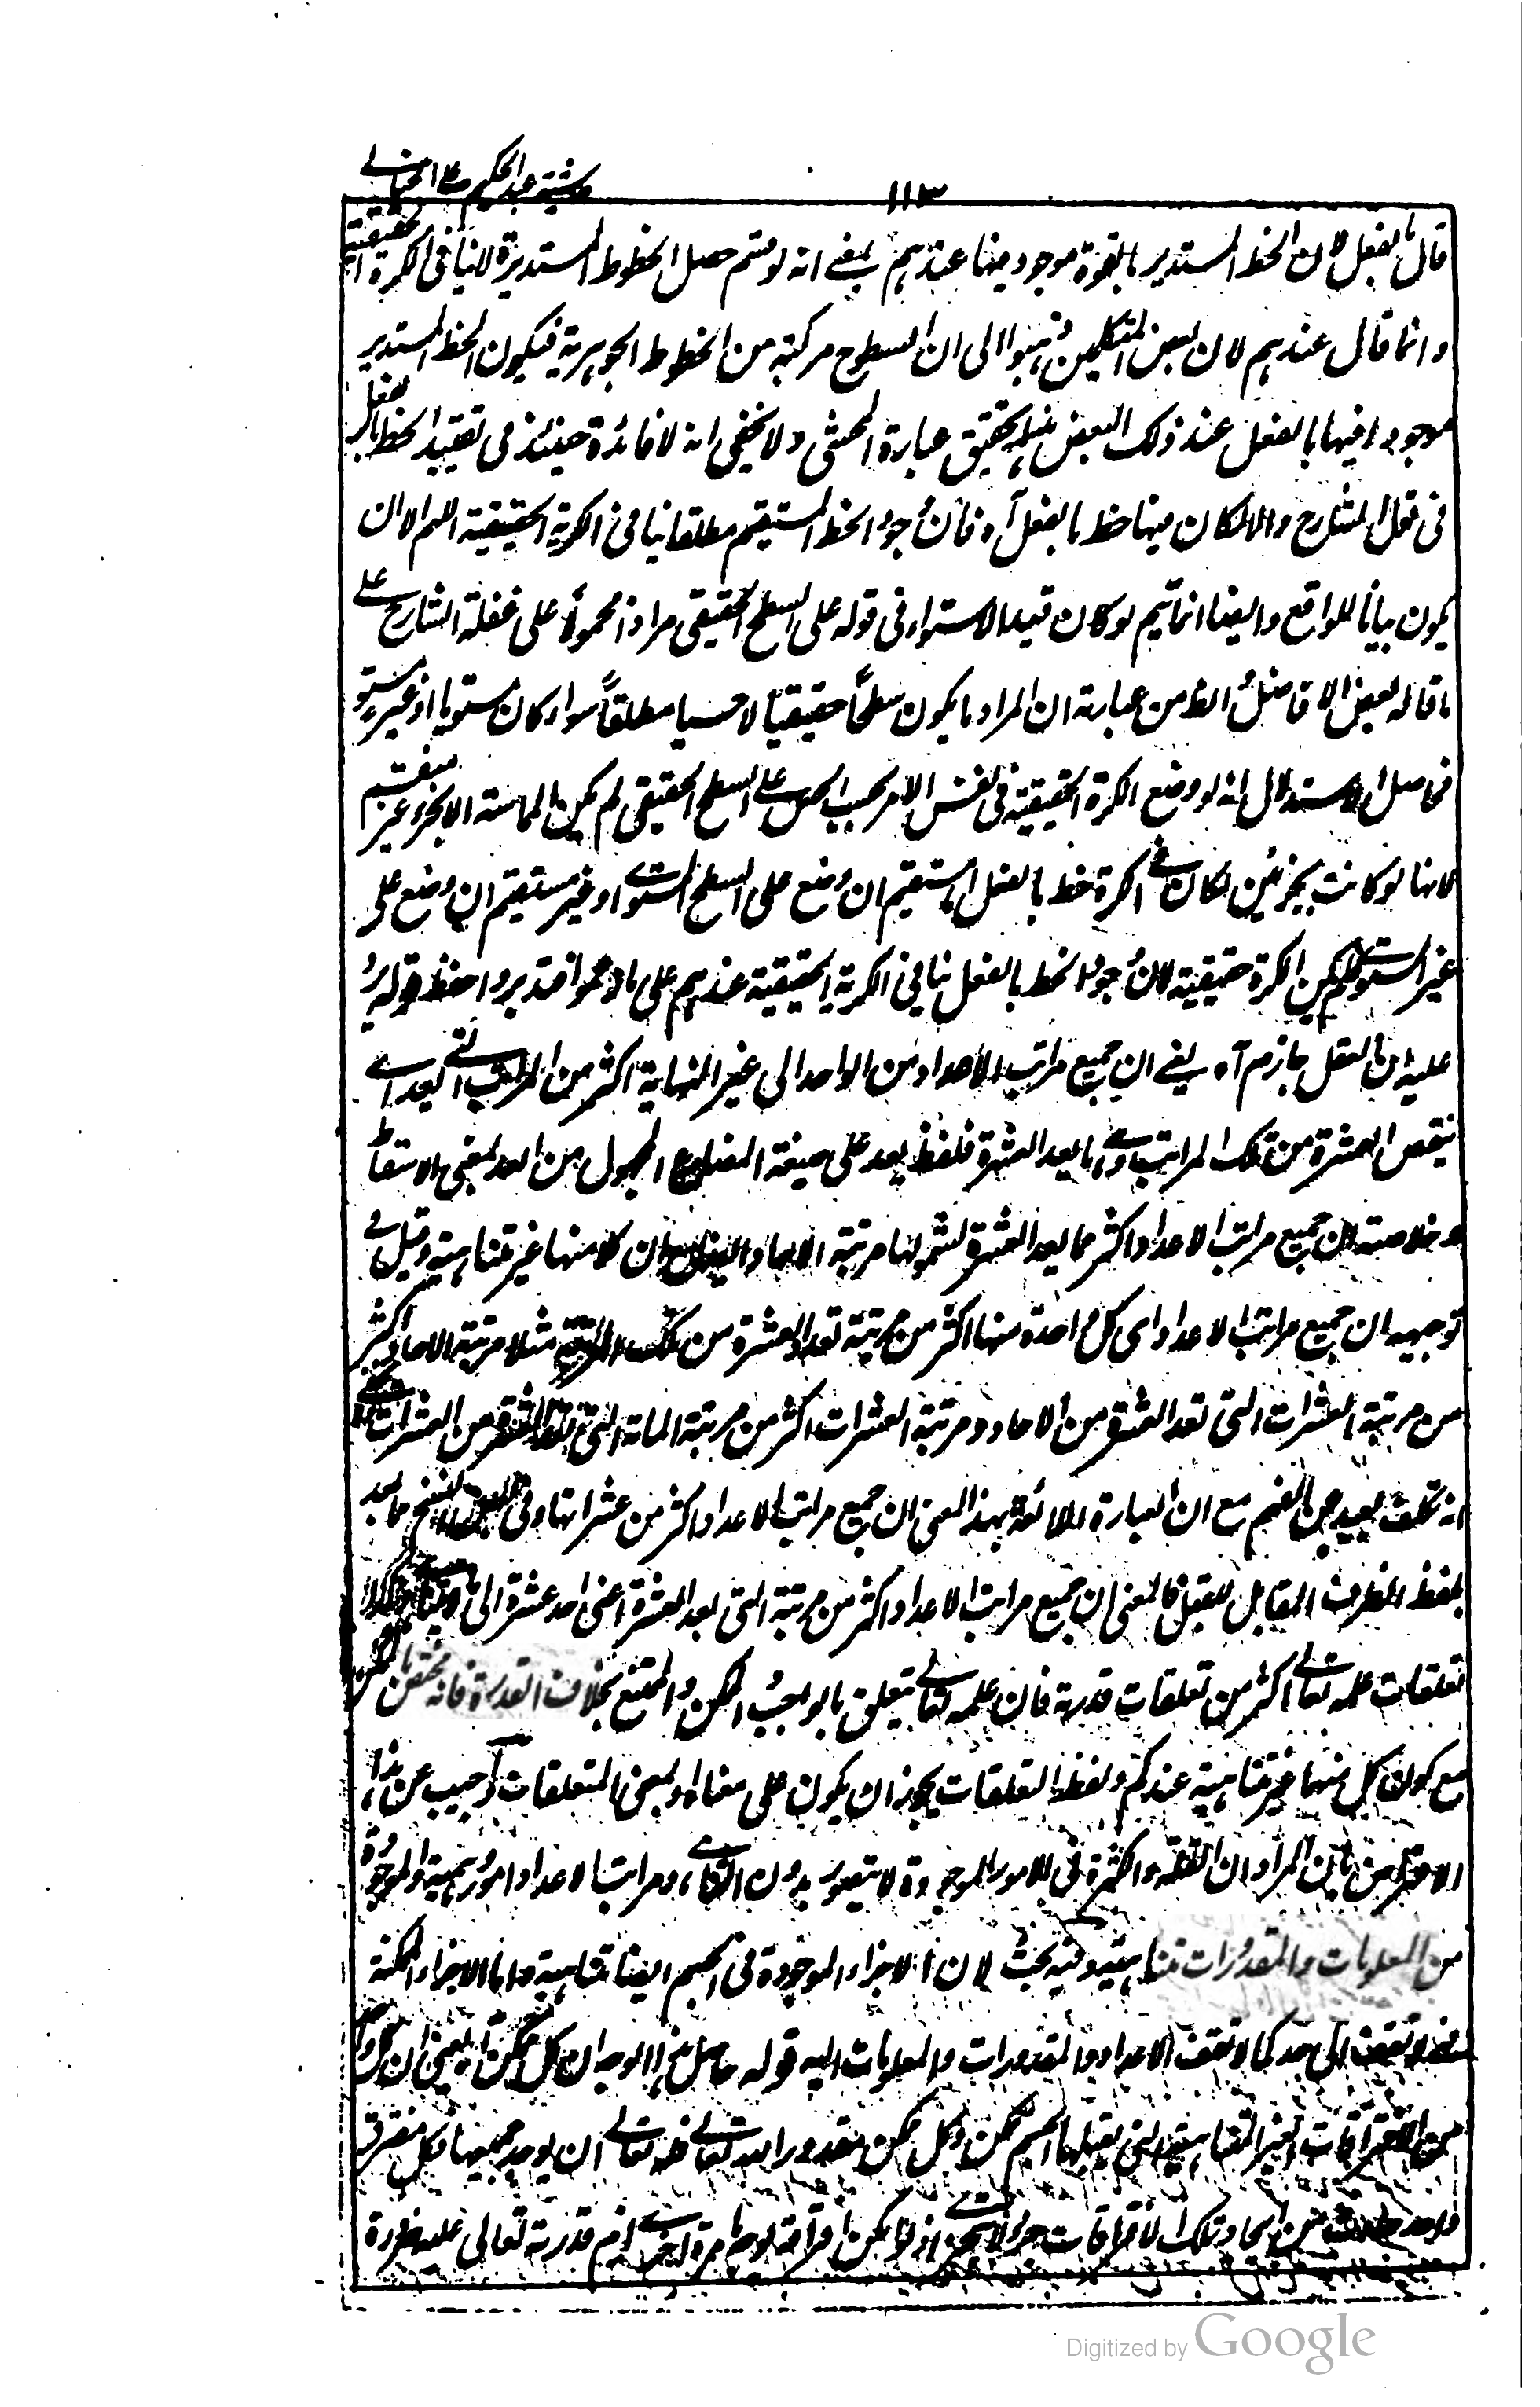 حاشیة عبد الحکیم علی الخیالی
۱۱۳
قال بالفعل لان الخط المستدیر بالقوة موجود فیها عندهم بمعنی انه لو قسم حصل الخطوط المستدیرة لا ینافی الکرة الحقیقیة
وانما قال عندهم لان بعض المتکلمین ذهبوا الی ان السطوح مرکبة من الخطوط الجوهریة فیکون الخط المستدیر
موجودا فیها بالفعل عند ذلک البعض هذا تحقیق عبارة المحشی ولا یخفی انه لا فائدة حینئذ فی تقیید الخط بالفعل
فی قول الشارح والا لکان فیها خط بالفعل آه فان وجود الخط المستقیم مطلقا ینافی الکریة الحقیقیة اللهم الا ان
یکون بیانا للواقع وایضا انما یتم لو کان قید الاستواء فی قوله علی السطح الحقیقی مرادا محمولا علی غفلة الشارح علی
ما قاله بعض الافاضل الظ من عبارته ان المراد ما یکون سطحا حقیقیا لا حسیا مطلقا سواء کان مستویا او غیر مستو
فحاصل الاستدلال انه لو وضع الکرة الحقیقیة فی نفس الامر بحسب الحس علی السطح الحقیقی لم یکن المماسة الا بجزء غیر منقسم
لانها لو کانت بجزئین لکان فی الکرة خط بالفعل اما مستقیم ان وضع علی السطح المستوی او غیر مستقیم ان وضع علی
غیر المستوی فلم یکن الکرة حقیقیة لان وجود الخط بالفعل ینافی الکریة الحقیقیة عندهم علی ما زعموا فتدبر واحفظ قوله یرد
علیه ان العقل جازم آه یعنی ان جمیع مراتب الاعداد من الواحد الی غیر النهایة اکثر من المراتب التی یعد ای
ینقص العشرة من تلک المراتب وهی ما یعد العشرة فلفظ یعد علی صیغة المضارع المجهول من العد بمعنی الاسقاط
وخلاصته ان جمیع مراتب الاعداد اکثر مما یعد العشرة لشمولها مرتبة الاحاد ایضا مع ان کلا منها غیر متناهیة وقیل فی
توجیهه ان جمیع مراتب الاعداد ای کل واحدة منها اکثر من مرتبة تعد العشرة من تلک المرتبة مثلا مرتبة الاحاد اکثر
من مرتبة العشرات التی تعد العشرة من الاحاد ومرتبة العشرات اکثر من مرتبة المائة التی تعد العشرة من العشرات
انه تکلف بعید عن الفهم مع ان العبارة اللائقة بهذا المعنی ان جمیع مراتب الاعداد اکثر من عشراتها وفی بعض النسخ مما بعد
بلفظ الظرف المقابل للقبل فالمعنی ان جمیع مراتب الاعداد اکثر من مرتبة التی بعد العشرة اعنی احد عشرة الی
تعلقات علمه تعالی اکثر من تعلقات قدرته فان علمه تعالی یتعلق بالواجب والممکن والممتنع بخلاف القدرة فانه مختص بالممکن
مع کون کل منهما غیر متناهیة عندکم ولفظ التعلقات یجوز ان یکون علی معناه او بمعنی المتعلقات واجیب عن هذا
الاعتراض بان المراد ان القلة والکثرة فی الامور الموجودة لا یتصور بدون التناهی ومراتب الاعداد امور وهمیة والموجودة
من المعلومات والمقدورات متناهیة وفیه بحث لان الاجزاء الموجودة فی الجسم ایضا متناهیة واما الاجزاء الممکنة
فلا تقف الی حد کما لا تقف الاعداد والمقدورات والمعلومات الیه قوله حاصل هذا الوجه ان کل ممکن آه یعنی ان کل واحد
من الافتراقات الغیر المتناهیة التی یقبلها الجسم ممکن وکل ممکن مقدور الله تعالی فله تعالی ان یوجد جمیعها فکل مفترق
واحد من احاد تلک الافتراقات جزء لا یتجزی اذ لو امکن افتراقه لوجه ما مرة اخری لزم قدرته تعالی علیه ضرورة
Digitized by Google